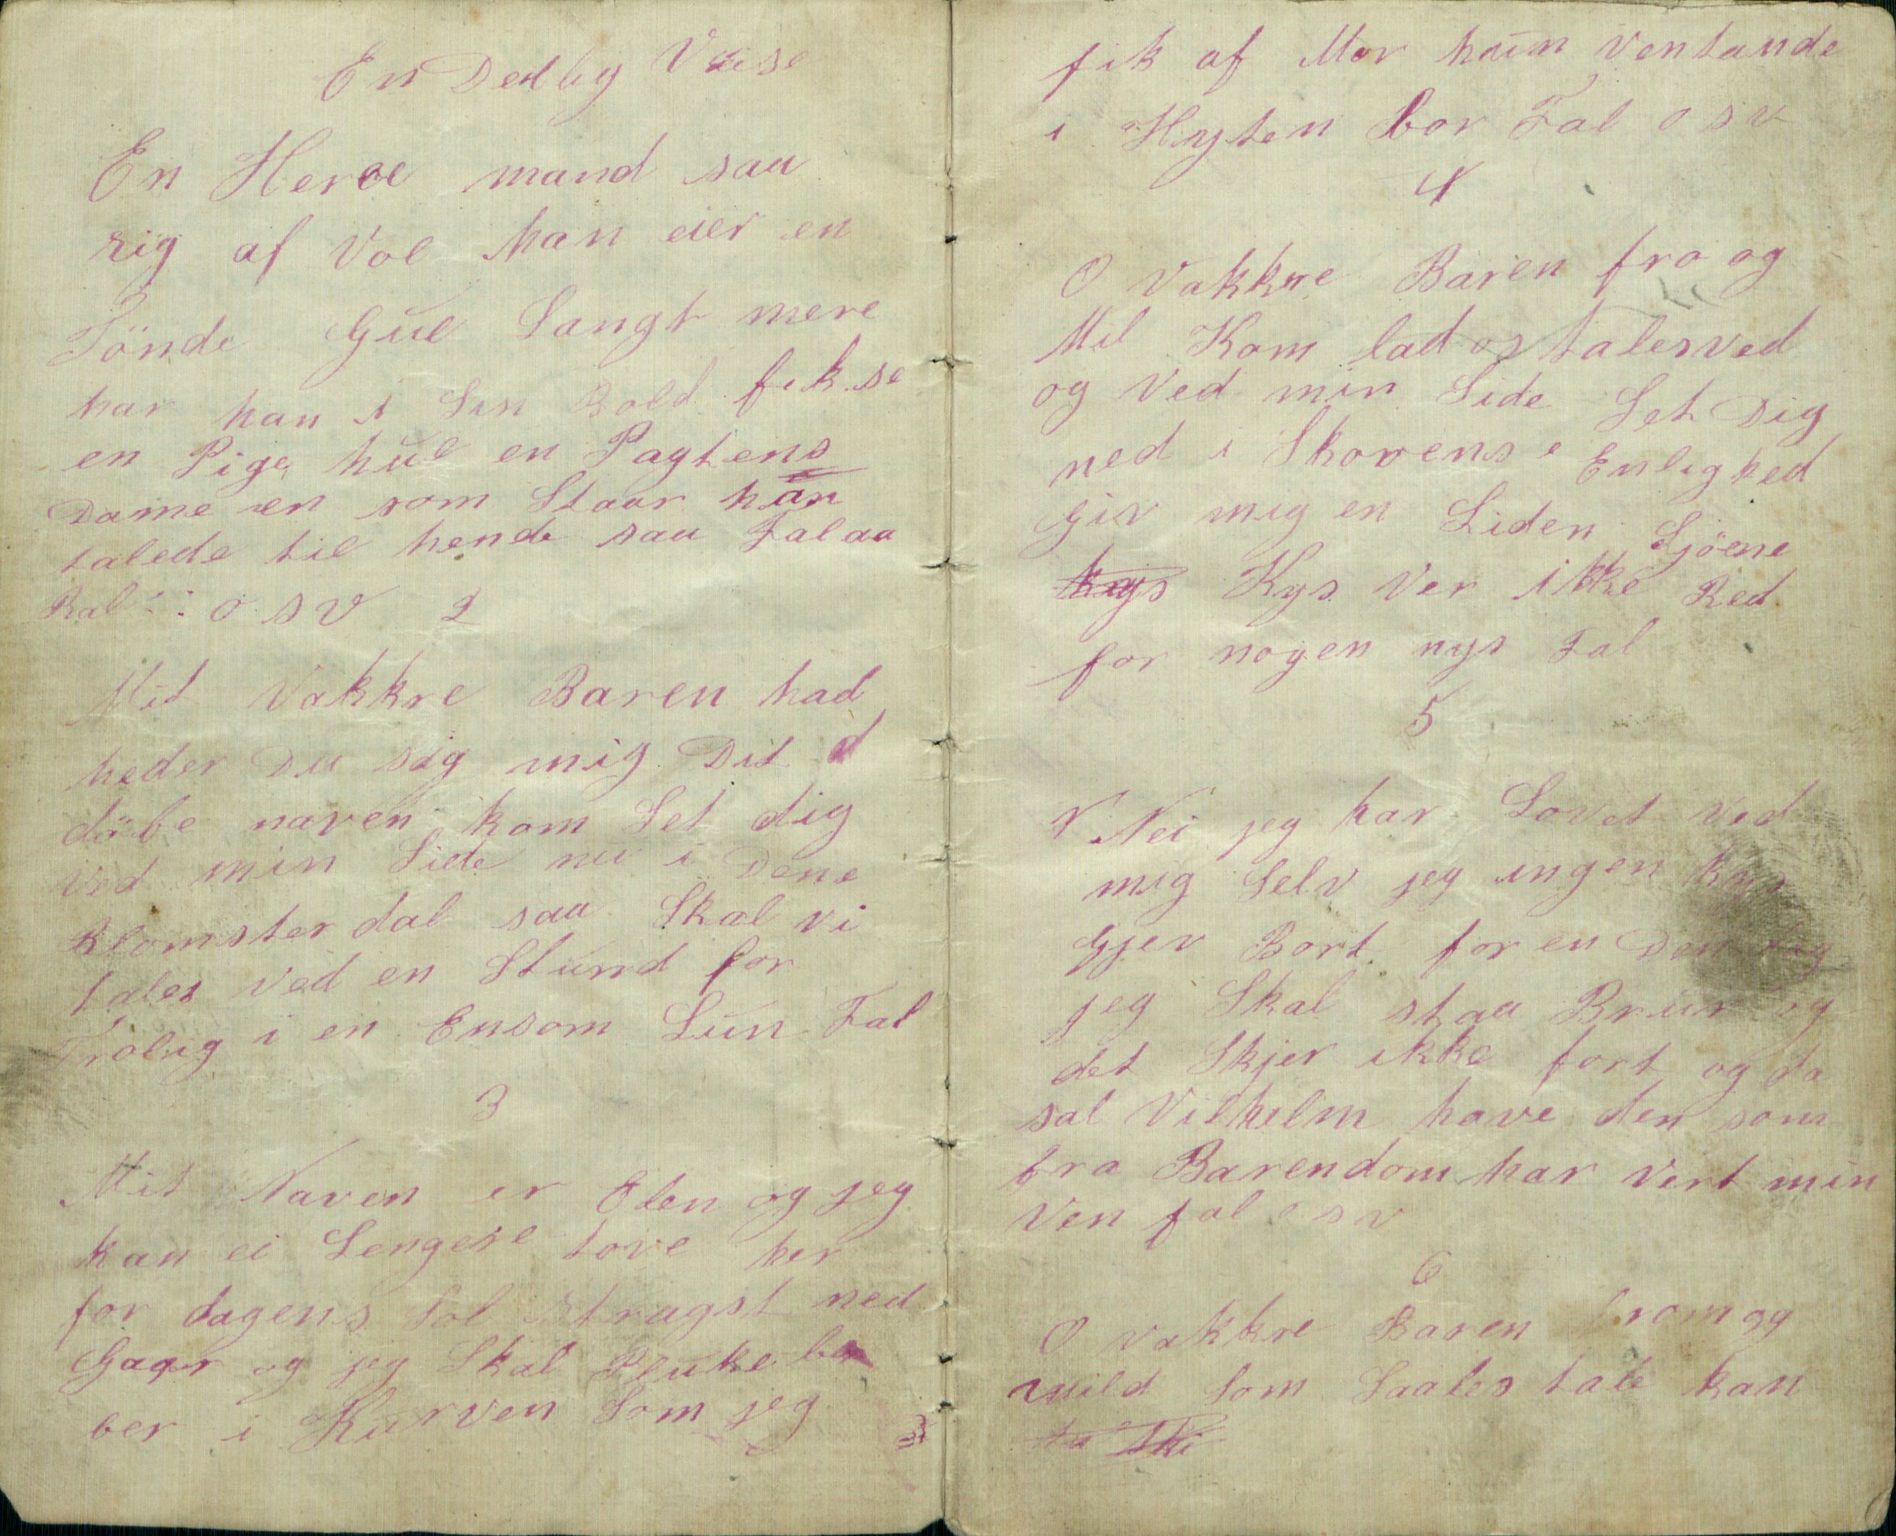 En Deilig Vise
En Herre mand saa
rig af Vol han eier en
Tönde Gul Langt mere
har han i Sin Bold fik se
en Pige hul en Pagtens
Dame en som Staar han
talede til hende saa Falaa
Ral :: o s v 2
Mit Vakkre Baren had
heder Du sig mig Dit d
döbe naven kom Set dig
ved min Side nu i Dene
Blomster dal saa Skal vi
tales ved en Stund for
Trolig i en Ensom Lun Fal
3
Mit Naven er Elen og jeg
kan ei Lengere tove her
for dagens Sol Stragst ned
Gaar og jeg Skal Pluke be
ber i Kurven Som jeg
fik af Mor hum ventande
i Hyten bor Fal o s v
4
O Vakkre Baren fro og
Mil Kom lad os tales ved
og Ved min Side Set Dig
ned i Skovens e Enlighed
Giv mig en Liden Sjöene
kys Kys Ver ikke Red
for nogen nys Fal
5
N Nei jeg har Lovet Ved
mig Selv jeg ingen kys
Gjev Bort for en Den dag
jeg Skal staa Brur og
det Skjer ikke fort og da
sal Vilhelm have den som
fra Barendom har Vert min
Ven fal o s v
6
O vakkre Baren from og
mild Som Saales tale kan